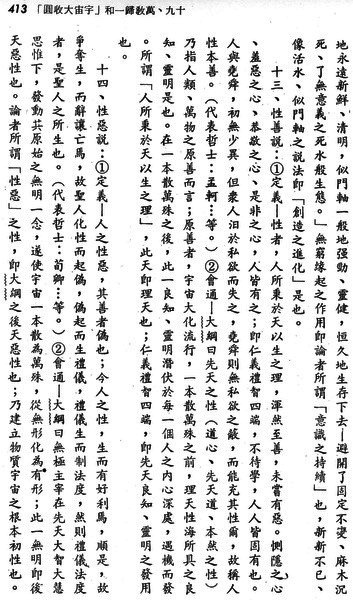 十九、萬教歸一和「宇宙大收圓」 413
地永遠新鮮、清明,似門軸一般地強勁、靈健,恒久地生存下去—避開了固定不變、麻木沉
死、了無意義之死水般生態。」無窮緣起之作用即論者所謂「意識之持續」也,新新不已、
像活水、似門軸之說法即「創造之進化」是也。
十三、性善說:①定義—性者,人所秉於天以生之理,渾然至善,未嘗有惡。惻隱之心
、羞惡之心、恭敬之心、是非之心,人皆有之;即仁義禮智四端,不待學,人人皆固有也。
人與堯舜,初無少異,但衆人汨於私欲而失之,堯舜則無私欲之蔽,而能充其性爾,故稱人
性本善。(代表哲士:孟軻…等。)②會通—大綱曰先天之性(道心、先天性、本然之性)
乃指人類、萬物之原善而言;原善者,宇宙大化流行,一本散萬殊之前,理天性海所具之良
知、靈明是也。在一本散萬殊之後,此一良知、靈明潛伏於每一個人之內心深處,遇機而發
。所謂「人所秉於天以生之理」,此天即理天也;仁義禮智四端,即先天良知、靈明之發用
也。
十四、性惡說:①定義—人之性惡,其善者僞也;今人之性,生而有好利焉,順是,故
爭奪生,而辭讓亡焉,故聖人化性而起僞,僞起而生禮儀,禮儀生而制法度,然則禮儀法度
者,是聖人之所生也。(代表哲士:荀卿…等。)②會通—大綱曰無極主宰在先天大智大慧
思惟下,發動其原始之無明一念,遂使宇宙一本散為萬殊,從無形化為有形;此一無明即後
天惡性也。論者所謂「性惡」之性,即大綱之後天惡性也;乃建立物質宇宙之根本初性也。